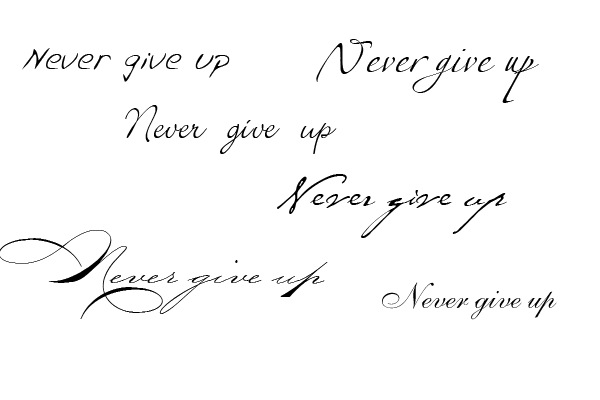 Never give up
Never give up
Never give up
Never give up
Never give up
Never give up